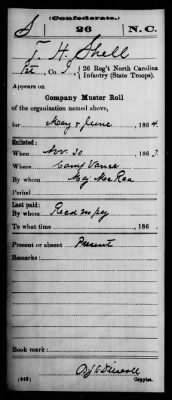 (Confederate.)
S 26 N.C.
T. H. Shell
Pvt, Co. I, 26 Reg't North Carolina
Infantry (State Troops).
Appears on
Company Muster Roll
of the organization named above,
for May & June, 1864.
Enlisted:
When Nov. 30, 1863.
Where Camp Vance
By whom Maj. McRae
Period
Last paid:
By whom Recd no pay
To what time, 186
Present or absent Present
Remarks:
Book mark:
(642) Copyist.